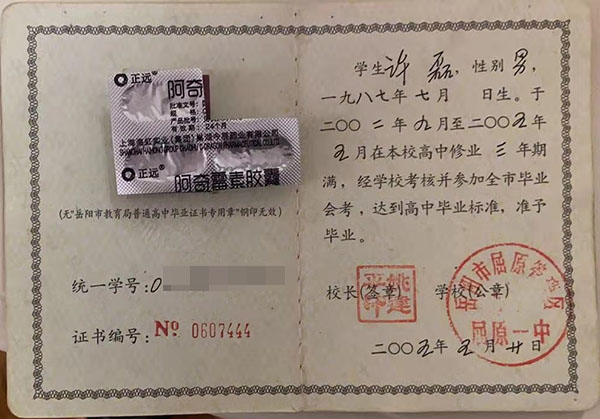 正远
阿奇
批准文号:
规 格
产品批号:
有效期:24个月
正远
阿奇霉素胶囊
(无"岳阳市教育局普通高中毕业证书专用章"钢印无效)
统一学号:0
证书编号:№ 0607444
学生许磊,性别男,
一九八七年七月 日生。于
二〇〇二年九月至二〇〇五年
五月在本校高中修业三年期
满,经学校考核并参加全市毕业
会考,达到高中毕业标准,准予
毕业。
校长(签章) 学校(公章)
岳阳市屈原管理区
屈原一中
二〇〇五年五月廿日